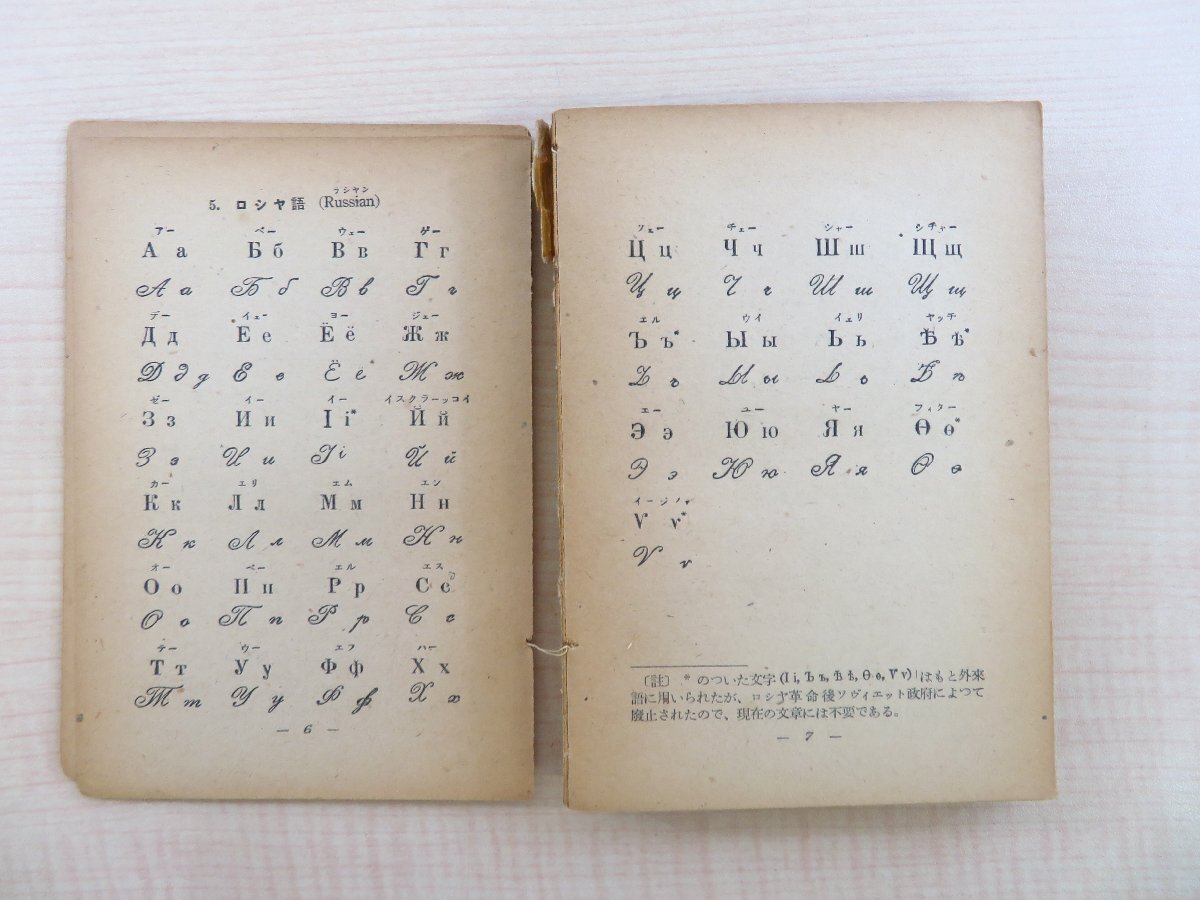 ラシヤン
5. ロシヤ語 (Russian)
アー ベー ウェー ゲー
А а Б б В в Г г
А а Б б В в Г г
デー イェー ヨー ジェー
Д д Е е Ё ё Ж ж
Д д д Е е Ё ё Ж ж
ゼー イー イー イスクラーッコイ
З з И и І і* Й й
З з И и І і Й й
カー エリ エム エン
К к Л л М м Н н
К к Л л М м Н н
オー ペー エル エス
О о П п Р р С с
О о П п Р р С с
テー ウー エフ ハー
Т т У у Ф ф Х х
Т т У у Ф ф Х х
— 6 —
ツェー チェー シャー シチャー
Ц ц Ч ч Ш ш Щ щ
Ц ц Ч ч Ш ш Щ щ
エル ウイ イェリ ヤッチ
Ъ ъ* Ы ы Ь ь Ѣ ѣ*
Ъ ъ Ы ы Ь ь Ѣ ѣ
エー ユー ヤー フィター
Э э Ю ю Я я Ѳ ѳ*
Э э Ю ю Я я Ѳ ѳ
イージツァ
Ѵ ѵ*
Ѵ ѵ
〔註〕 * のついた文字 (І і, Ъ ъ, Ѣ ѣ, Ѳ ѳ, Ѵ ѵ) はもと外來
語に用いられたが、ロシヤ革命後ソヴィエット政府によつて
廢止されたので、現在の文章には不要である。
— 7 —